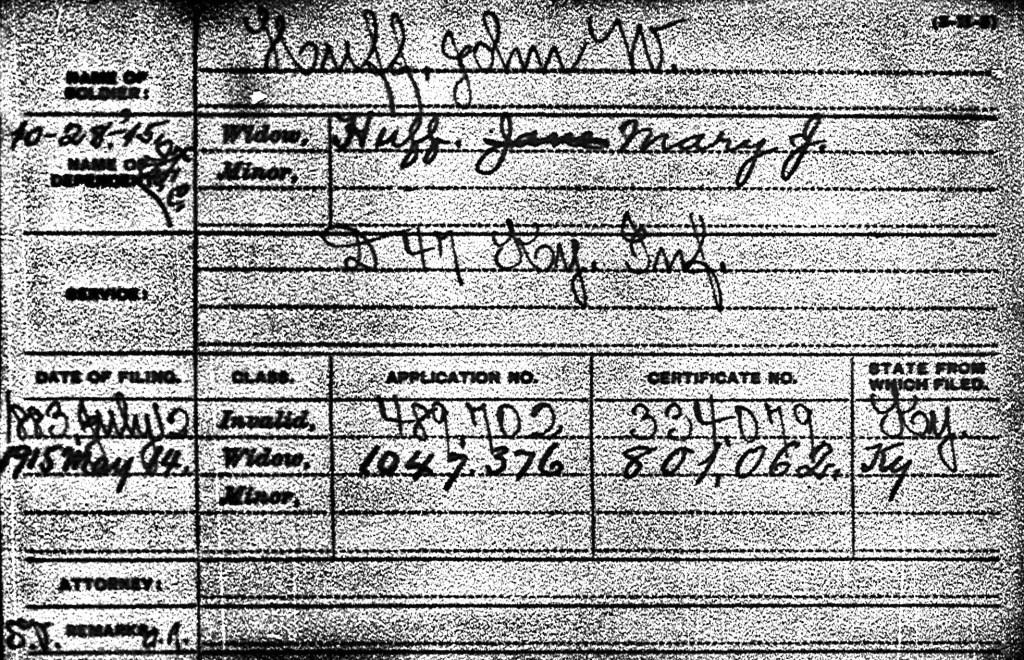 (3-33-6)
Huff, John W.
NAME OF
SOLDIER:
10-28-15
NAME OF
DEPENDENT:
Widow, Huff. Jane Mary J.
Minor,
D 47 Ky. Inf.
SERVICE:
DATE OF FILING. CLASS. APPLICATION NO. CERTIFICATE NO. STATE FROM
WHICH FILED.
1883 July 12 Invalid, 489,702 334,079 Ky.
1915 May 14. Widow, 1047.376 801,062. Ky
Minor,
ATTORNEY:
REMARKS: